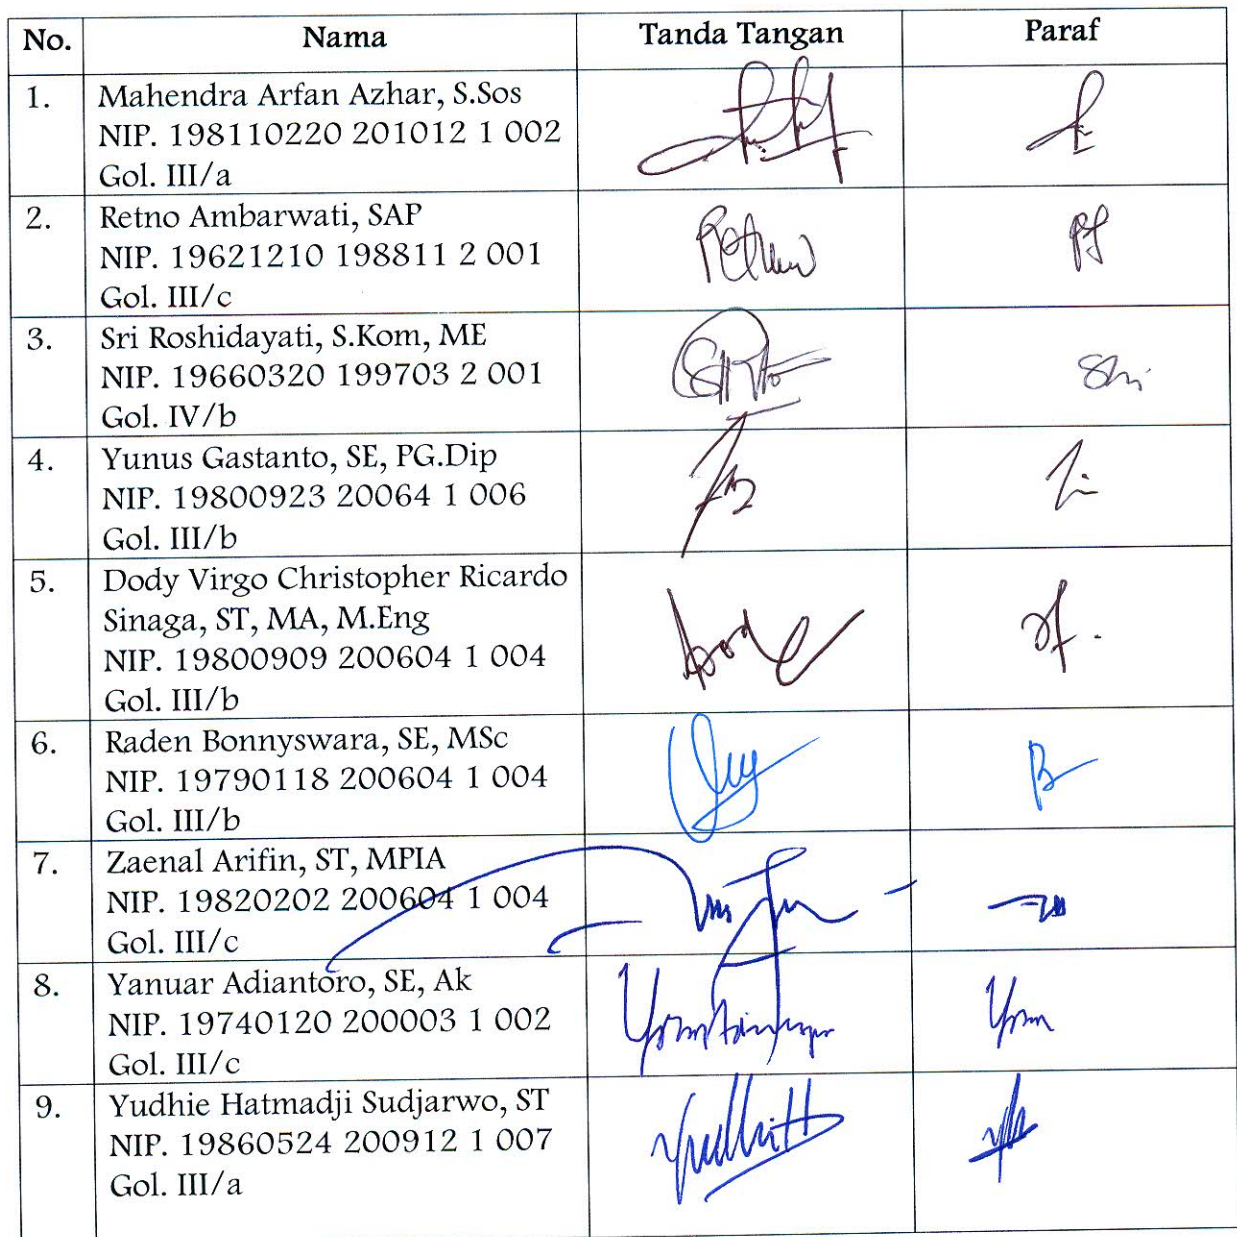 No. Nama Tanda Tangan Paraf
1. Mahendra Arfan Azhar, S.Sos
NIP. 198110220 201012 1 002
Gol. III/a
2. Retno Ambarwati, SAP
NIP. 19621210 198811 2 001
Gol. III/c
3. Sri Roshidayati, S.Kom, ME
NIP. 19660320 199703 2 001
Gol. IV/b
4. Yunus Gastanto, SE, PG.Dip
NIP. 19800923 20064 1 006
Gol. III/b
5. Dody Virgo Christopher Ricardo
Sinaga, ST, MA, M.Eng
NIP. 19800909 200604 1 004
Gol. III/b
6. Raden Bonnyswara, SE, MSc
NIP. 19790118 200604 1 004
Gol. III/b
7. Zaenal Arifin, ST, MPIA
NIP. 19820202 200604 1 004
Gol. III/c
8. Yanuar Adiantoro, SE, Ak
NIP. 19740120 200003 1 002
Gol. III/c
9. Yudhie Hatmadji Sudjarwo, ST
NIP. 19860524 200912 1 007
Gol. III/a